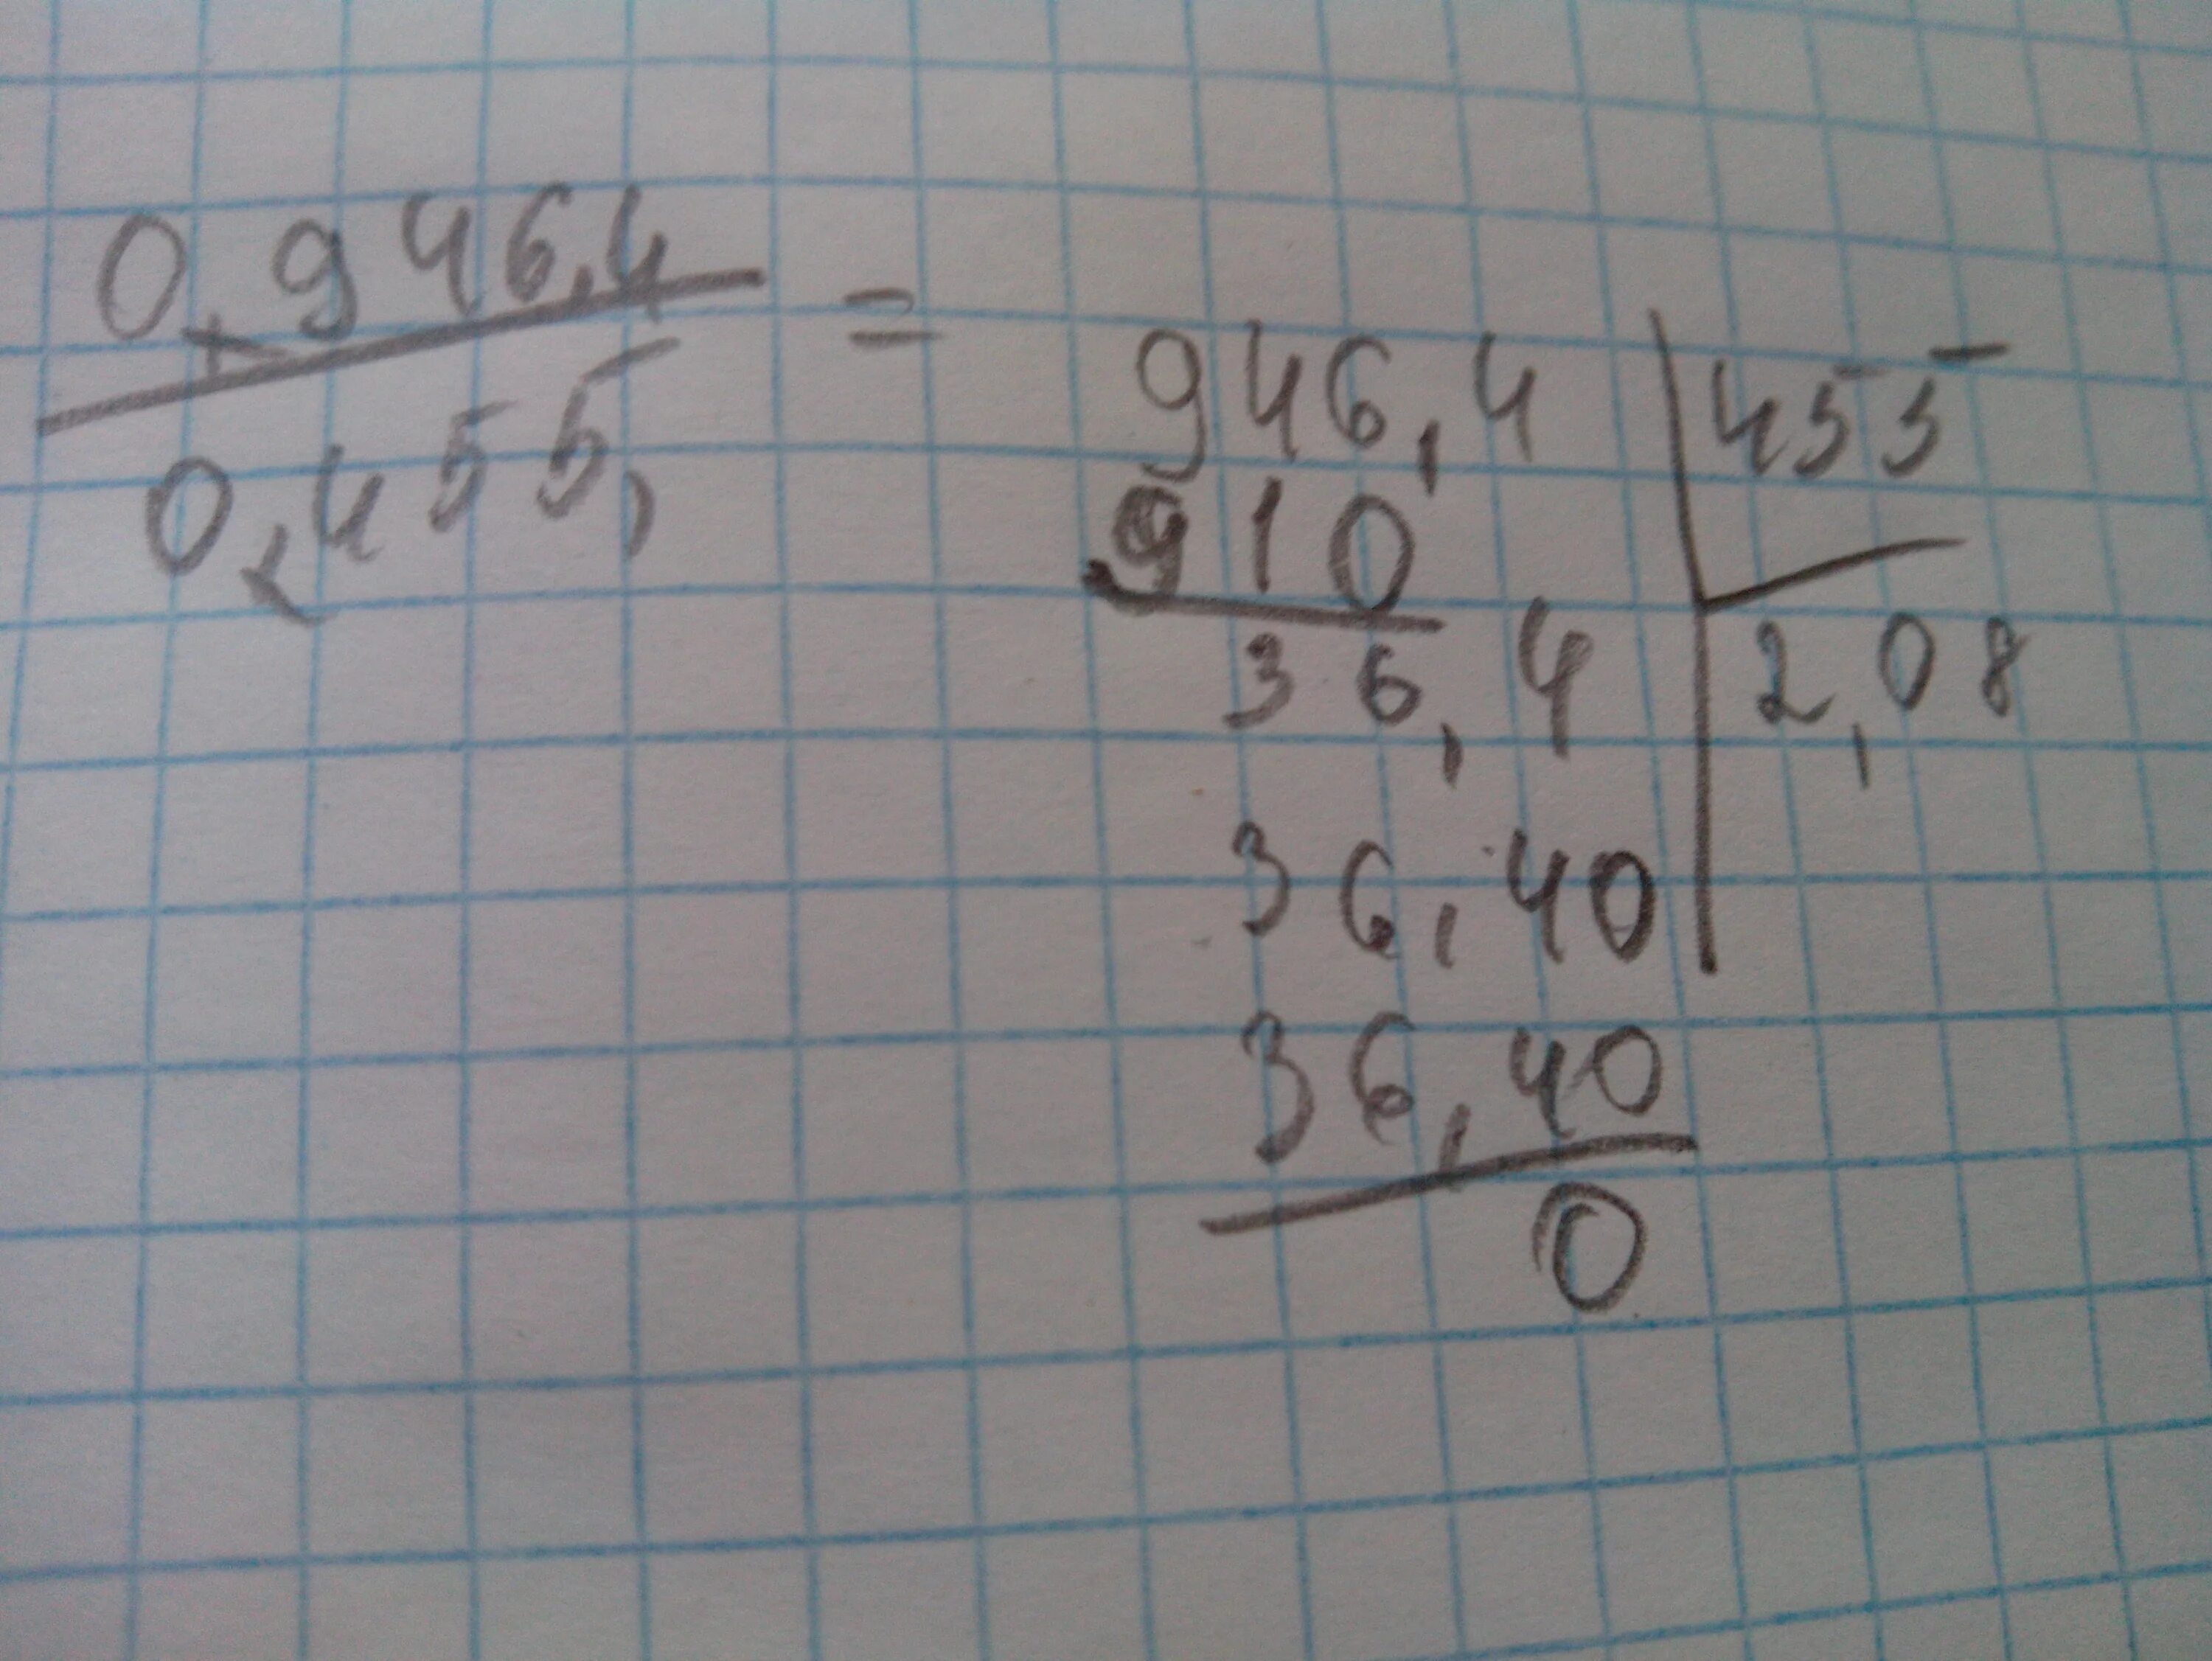 0,946,4
0,455,
=
946,4 455
910
36,4 2,08
36,40
36,40
0